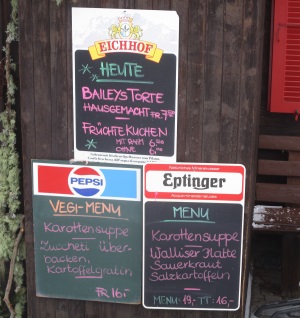 EICHHOF
HEUTE
BAILEYS TORTE
HAUSGEMACHT FR. 7.20
FRÜCHTEKUCHEN
MIT RAHM 6.90
OHNE 6.-
PEPSI
VEGI-MENU
Karottensuppe
Zucchetti über-
backen,
Kartoffelgratin
FR 16.-
Eptinger
MENU
Karottensuppe
Walliser Platte
Sauerkraut
Salzkartoffeln
MENU 19,- TT: 16,-